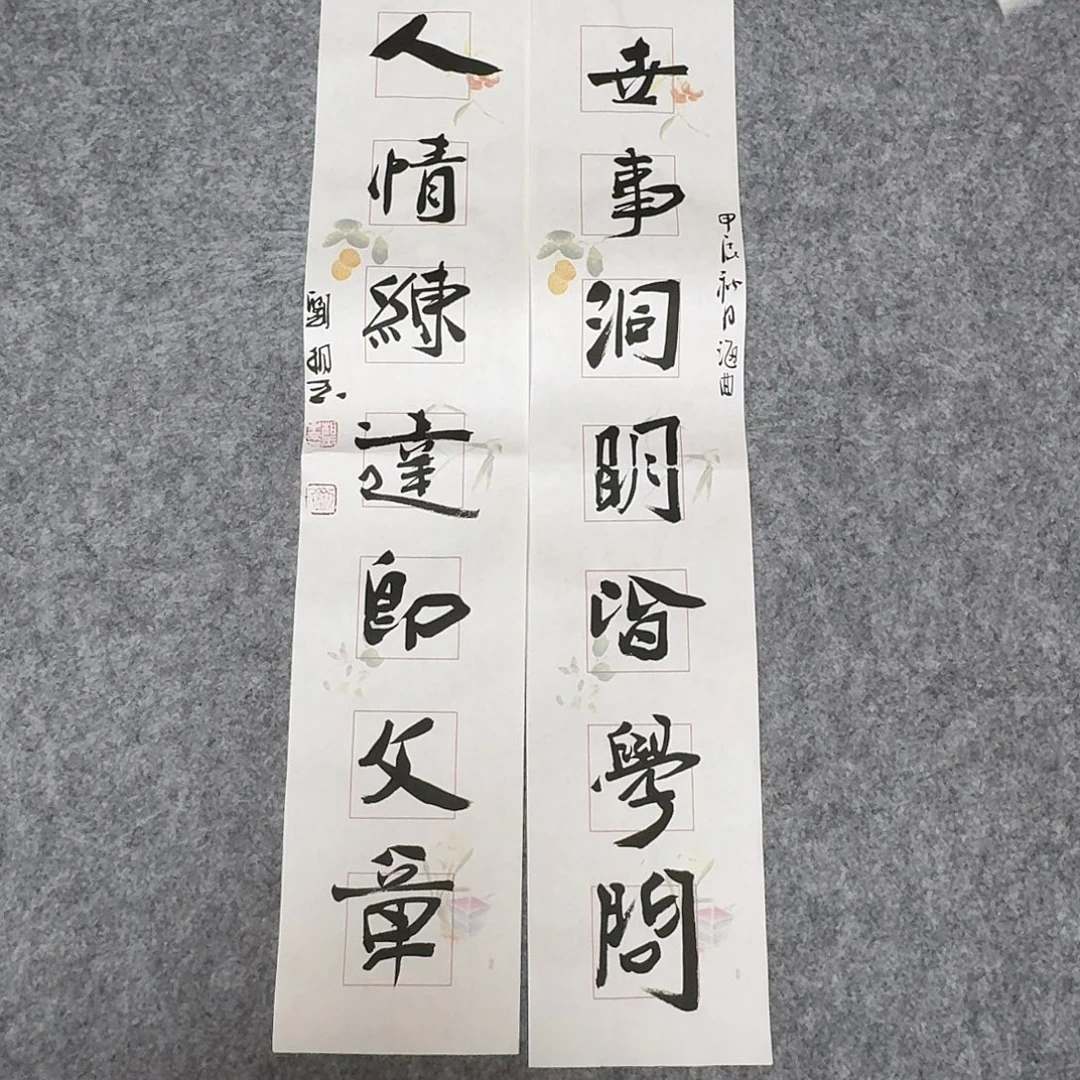 甲辰秋月海曲
世事洞明皆學問
人情練達即文章
劉